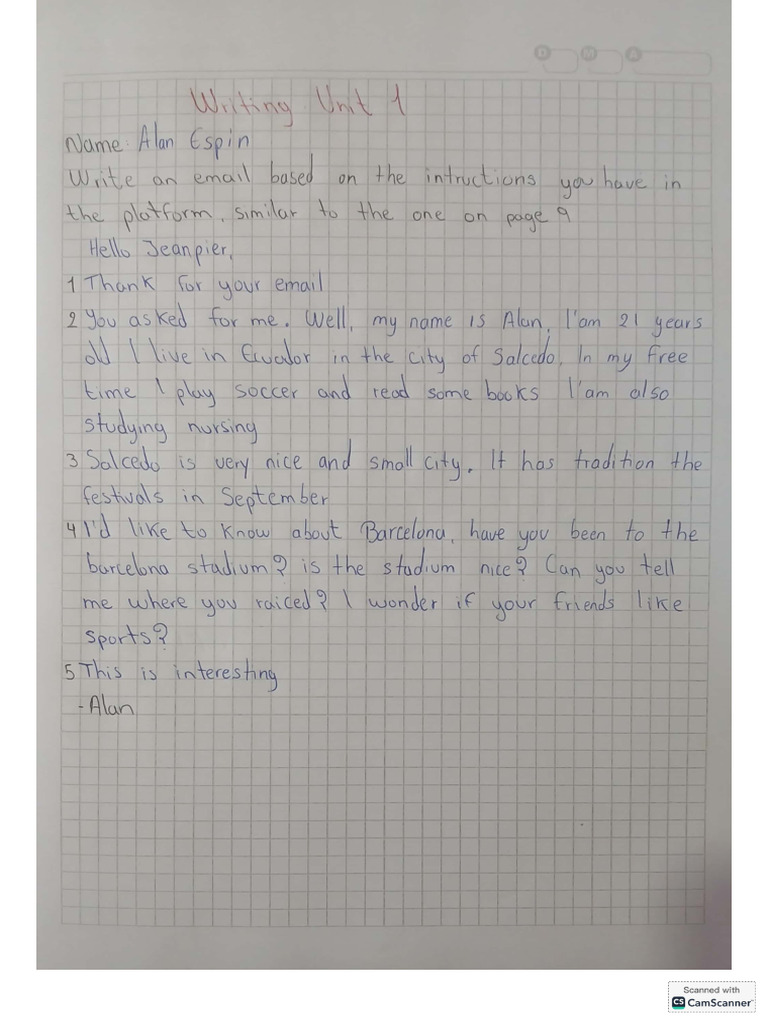 D M A
Writing Unit 1
Name: Alan Espin
Write an email based on the intructions you have in
the platform, similar to the one on page 9
Hello Jeanpier,
1 Thank for your email
2 You asked for me. Well, my name is Alan, I'am 21 years
old I live in Ecuador in the city of Salcedo. In my free
time I play soccer and read some books I'am also
studying nursing
3 Salcedo is very nice and small city. It has tradition the
festivals in September
4 I'd like to know about Barcelona, have you been to the
barcelona stadium? is the stadium nice? Can you tell
me where you raiced? I wonder if your friends like
sports?
5 This is interesting
-Alan
Scanned with
CS CamScanner